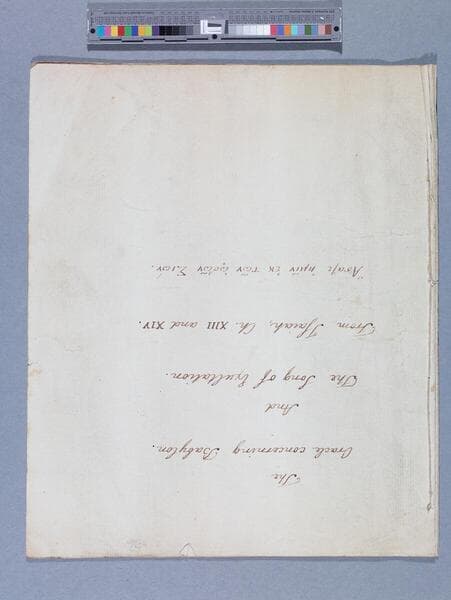 The
Oracle concerning Babylon.
And
The Song of Exultation.
From Iſaiah, Ch. XIII and XIV.
Ἄσατε ἡμῖν ἐκ τῶν ᾠδῶν Σιών.